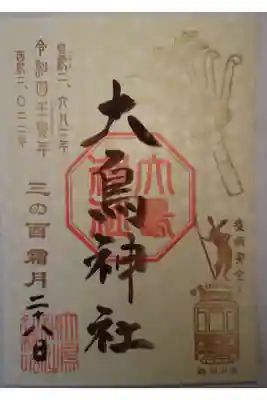 大鳥神社
皇紀二、六八二年
令和四壬寅年
西暦二、〇二二年
三の酉 霜月 二十八日